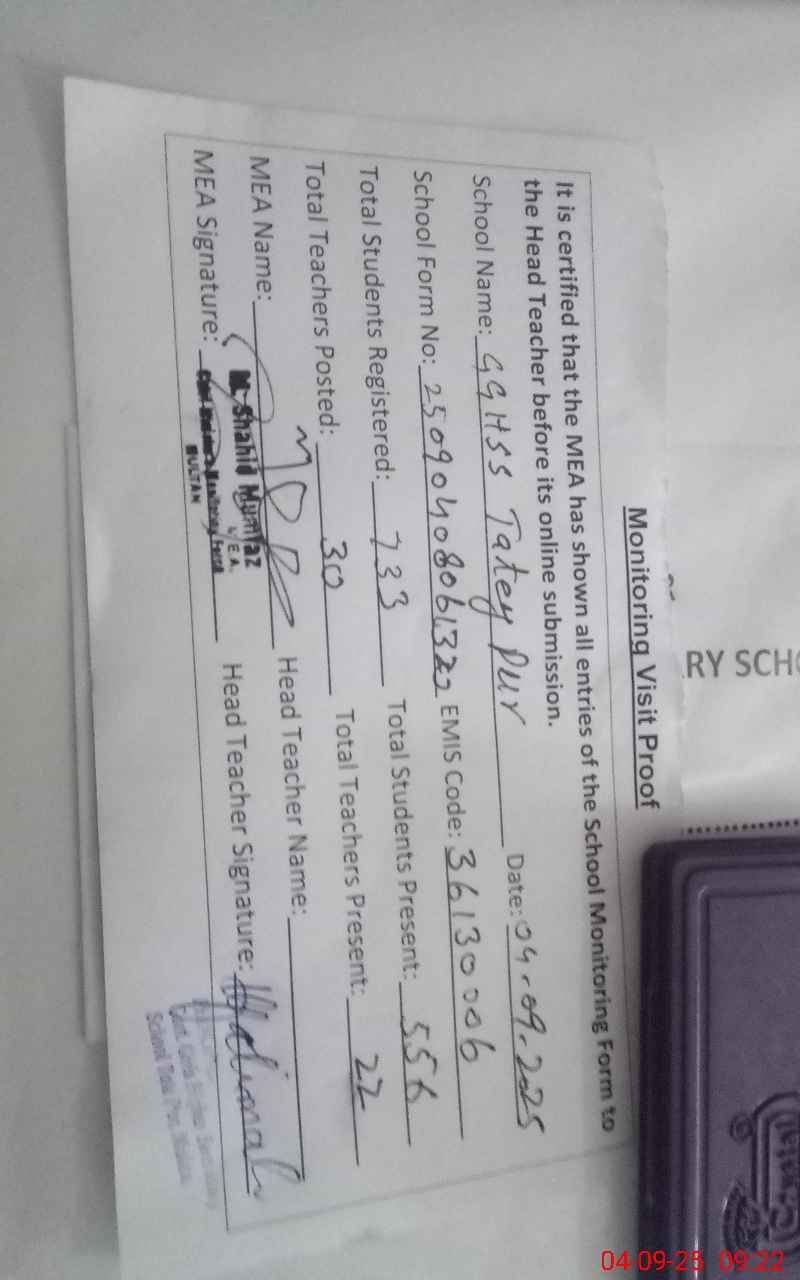 RY SCHO
Monitoring Visit Proof
It is certified that the MEA has shown all entries of the School Monitoring Form to
the Head Teacher before its online submission.
School Name: GGHSS Tatey Pur Date: 04-09-2025
School Form No: EMIS Code: 36130006
Total Students Registered: 733 Total Students Present: 556
Total Teachers Posted: 30 Total Teachers Present: 22
MEA Name: Head Teacher Name:
M. Shahid Mumtaz
M.E.A.
MEA Signature: Head Teacher Signature:
Chief Minister's Monitoring Force
MULTAN
04-09-25 09:22